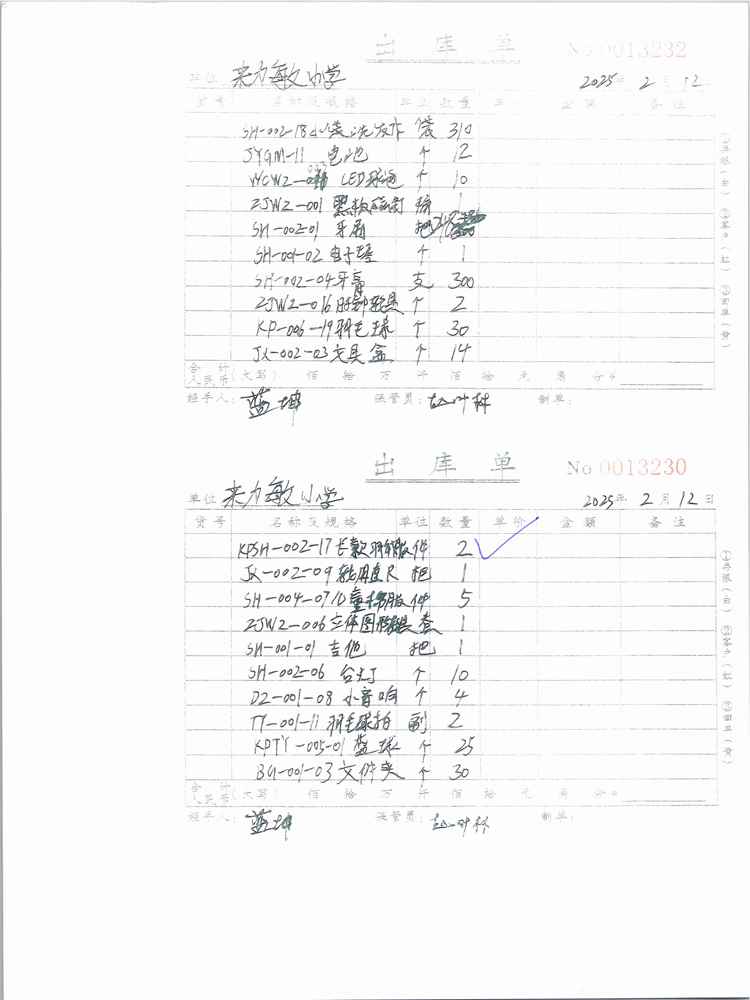 出库单 No 0013232
单位 来力敏小学 2025年 2月12
货号 名称及规格 单位 数量 单 金额 备注
SH-002-18 小袋洗发水 袋 310
JYGM-11 电池 个 12
WCWZ- LED 个 10
ZJWZ-001 1
SH-002-01 牙刷 把
SH-001-02 电子琴 个 1
SH-002-04 牙膏 支 300
ZJWZ-016 时钟教具 个 2
KP-006-19 羽毛球 个 30
JX-002-03 文具盒 个 14
合计人民币(大写) 佰 拾 万 仟 佰 拾 元 角 分¥
经手人: 蓝坤 保管员: 制单:
①存根(白) ②客户(红) ③回单(黄)
出库单 No 0013230
单位 来力敏小学 2025年 2月12日
货号 名称及规格 单位 数量 单价 金额 备注
KPSH-002-17 长款羽绒服 件 2
JX-002-09 软用直尺 把 1
SH-004-07 儿童 服 件 5
ZJWZ-006 立体图形教具 套 1
SH-001-01 吉他 把 1
SH-002-06 台灯 个 10
DZ-001-08 小音响 个 4
TY-001-11 羽毛球拍 副 2
KPTY-005-01 篮球 个 25
BG-001-03 文件夹 个 30
合计人民币(大写) 佰 拾 万 仟 佰 拾 元 角 分¥
经手人: 蓝坤 保管员: 制单:
①存根(白) ②客户(红) ③回单(黄)